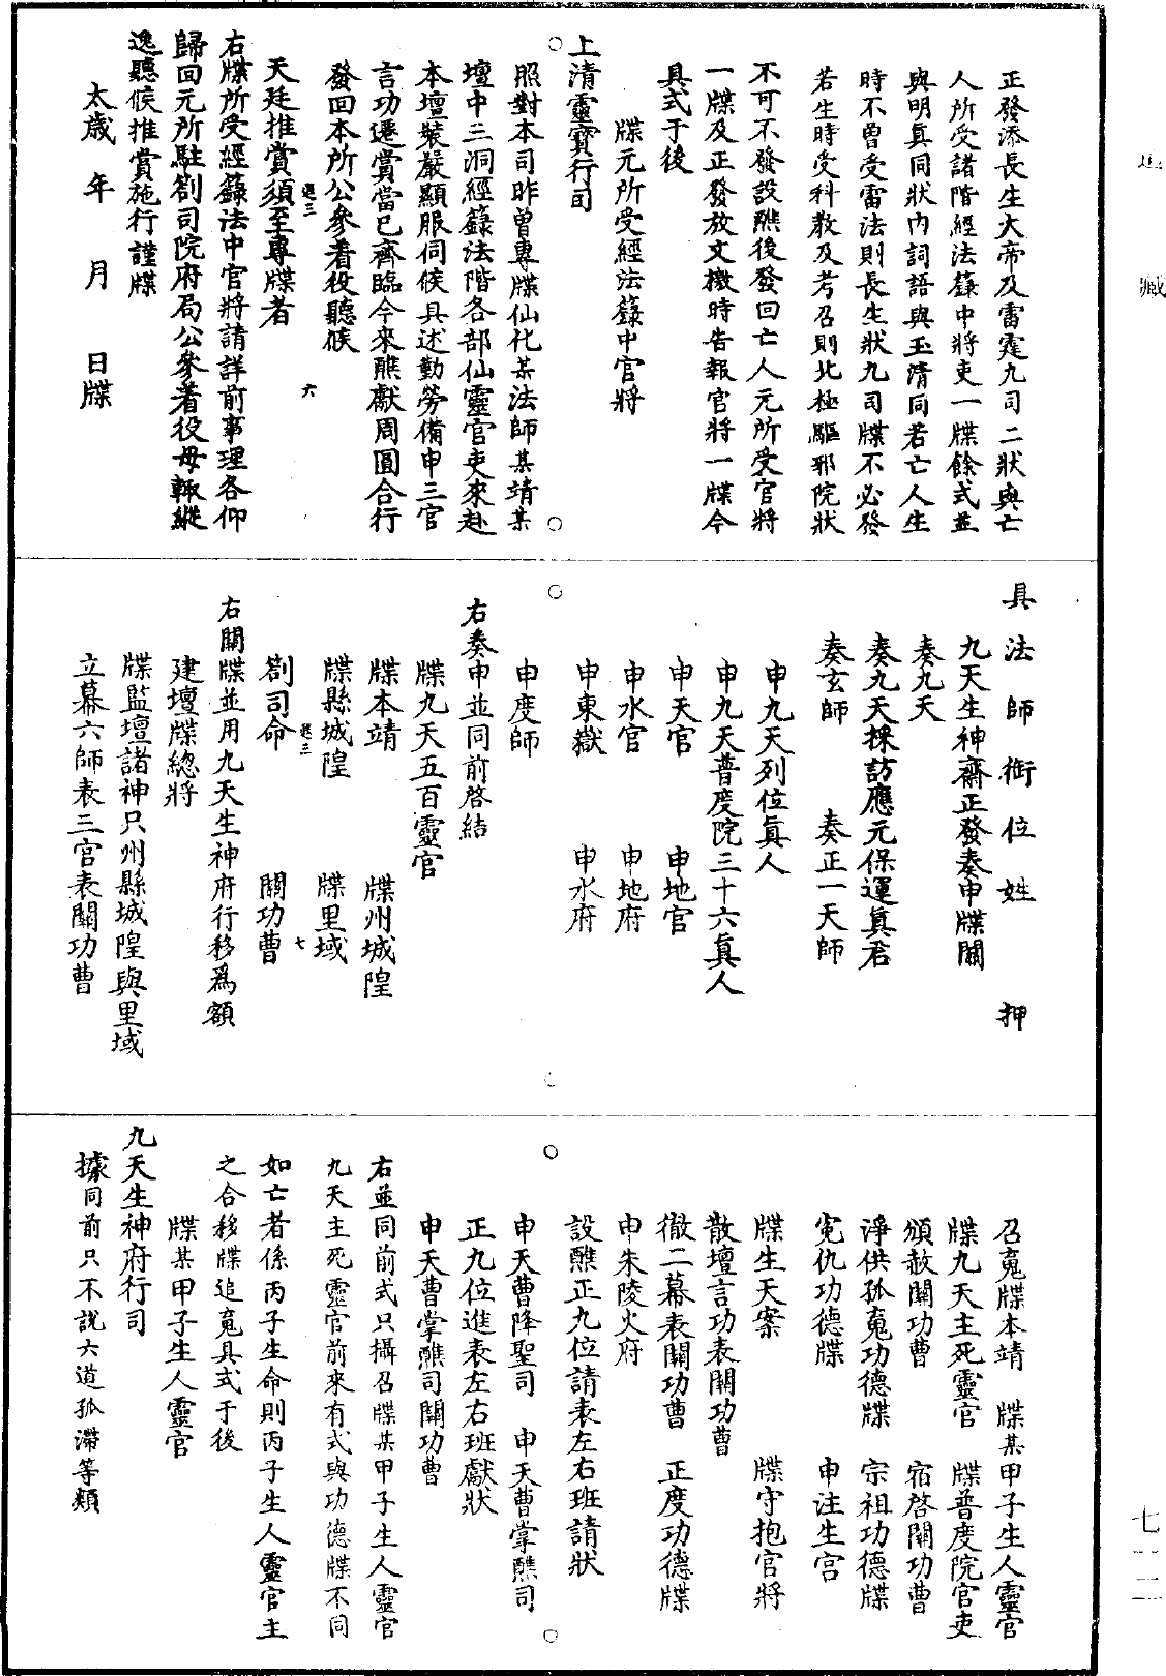 正發添長生大帝及雷霆九司二狀與亡
人所受諸階經法籙中將吏一牒餘式並
與明真同狀內詞語與玉清同若亡人生
時不曾受雷法則長生狀九司牒不必發
若生時受科教及考召則北極驅邪院狀
不可不發設醮後發回亡人元所受官將
一牒及正發放文檄時告報官將一牒今
具式于後
牒元所受經法籙中官將
上清靈寶行司
照對本司昨曾專牒仙化某法師某靖某
壇中三洞經籙法階各部仙靈官吏來赴
本壇裝嚴顯服伺候具述勤勞備申三官
言功遷賞當已齊臨今來醮獻周圓合行
發回本所公參着役聽候
天廷推賞須至專牒者
右牒所受經籙法中官將請詳前事理各仰
歸回元所駐劄司院府局公參着役毋輒縱
逸聽候推賞施行謹牒
太歲 年 月 日牒
具法師銜位姓 押
九天生神齋正發奏申牒關
奏九天
奏九天採訪應元保運真君
奏玄師 奏正一天師
申九天列位真人
申九天普度院三十六真人
申天官 申地官
申水官 申地府
申東嶽 申水府
申度師
右奏申並同前啓結
牒九天五百靈官
牒本靖 牒州城隍
牒縣城隍 牒里域
劄司命 關功曹
右關牒並用九天生神府行移爲額
建壇牒總將
牒監壇諸神只州縣城隍與里域
立幕六師表三官表關功曹
召魂牒本靖 牒某甲子生人靈官
牒九天主死靈官 牒普度院官吏
頒赦關功曹 宿啓關功曹
淨供孤魂功德牒 宗祖功德牒
冤仇功德牒 申注生宮
牒生天案 牒守抱官將
散壇言功表關功曹
徹二幕表關功曹 正度功德牒
申朱陵火府
設醮正九位請表左右班請狀
申天曹降聖司 申天曹掌醮司
正九位進表左右班獻狀
申天曹掌醮司關功曹
右並同前式只攝召牒某甲子生人靈官
九天主死靈官前來有式與功德牒不同
如亡者係丙子生命則丙子生人靈官主
之合移牒追魂具式于後
牒某甲子生人靈官
九天生神府行司
據同前只不說六道孤滯等類